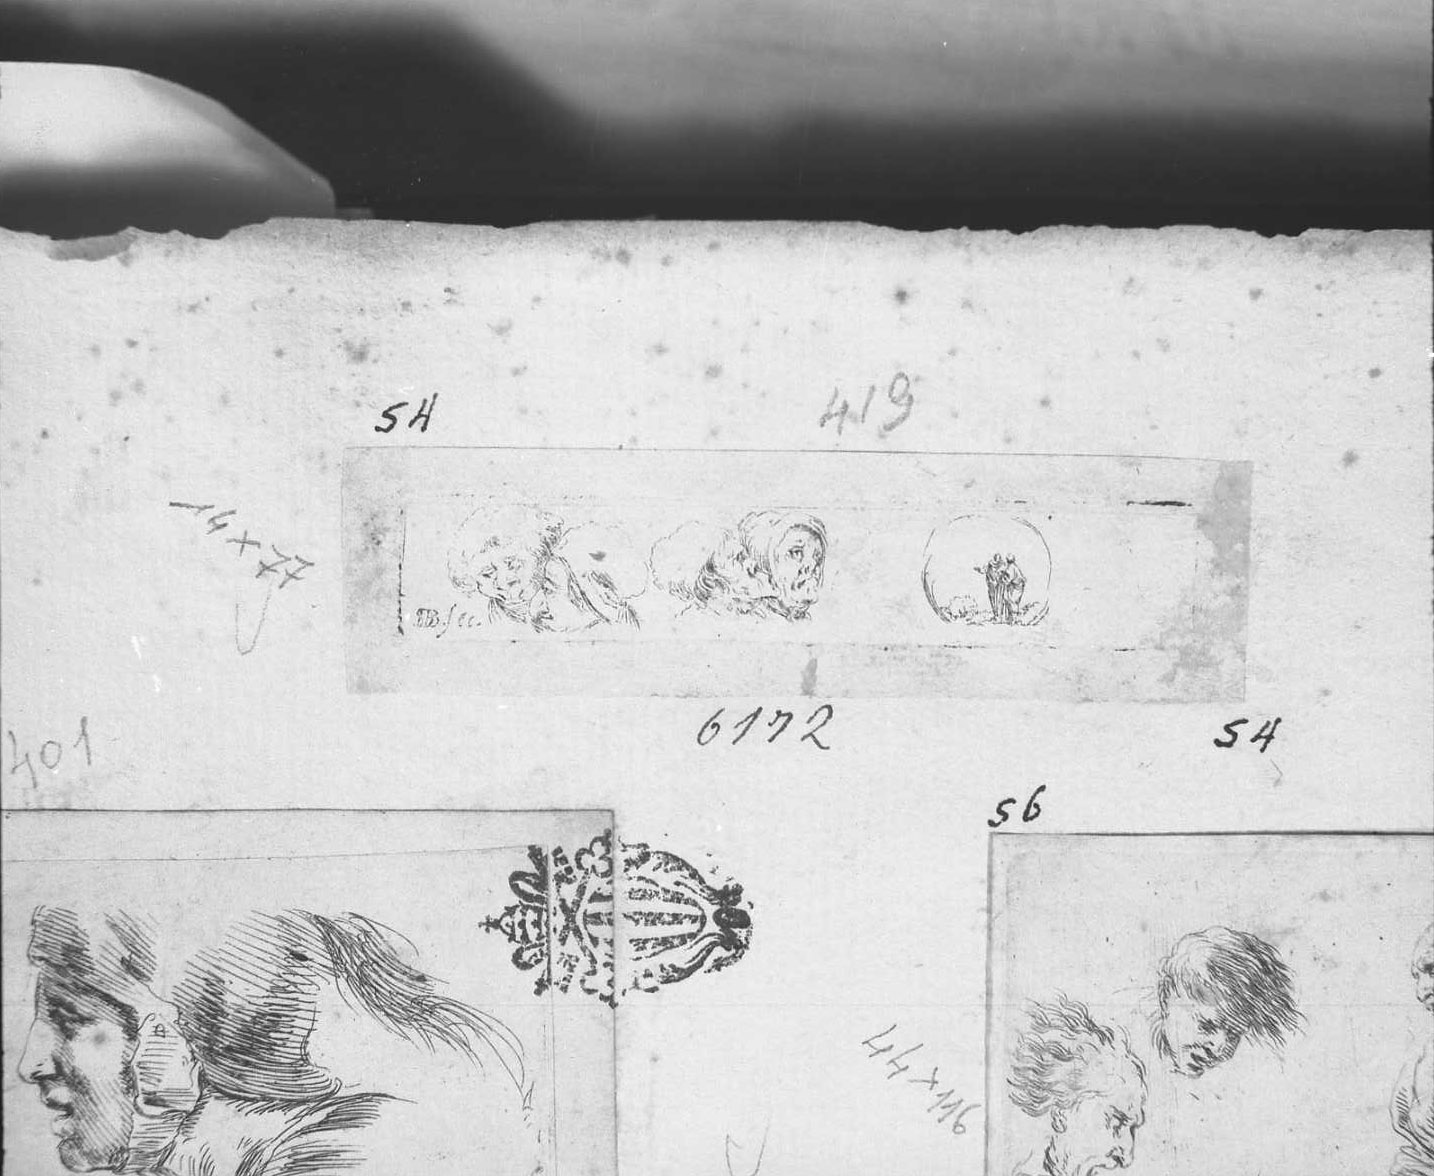 54
419
14 x 77
B. fec.
6172
54
401
56
44 x 116